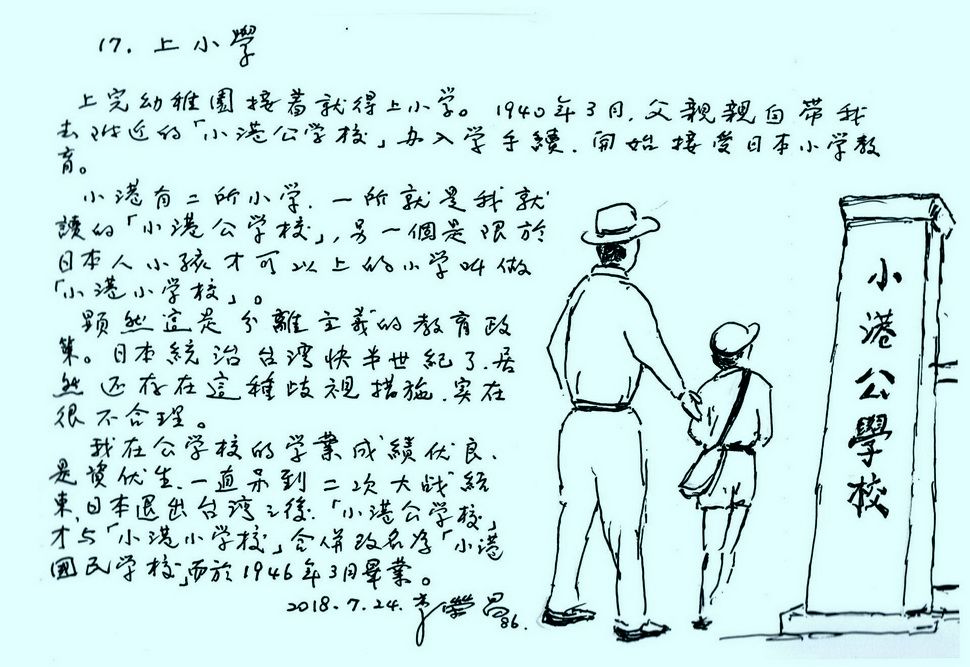 17. 上小學
上完幼稚園接着就得上小学。1940年3月,父親親自帶我
去附近的「小港公学校」办入学手續.開始接受日本小学教
育。
小港有二所小学.一所就是我就
讀的「小港公学校」,另一個是限於
日本人小孩才可以上的小学叫做
「小港小学校」。
顯然這是分離主義的教育政
策。日本統治台湾快半世紀了.居
然还存在這種歧視措施.実在
很不合理。
我在公学校的学業成績优良.
是資优生.一直呆到二次大战結
束,日本退出台湾之後.「小港公学校」
才与「小港小学校」合併改名为「小港
國民学校」而於1946年3月畢業。
2018.7.24.李榮昌86.
小港公學校